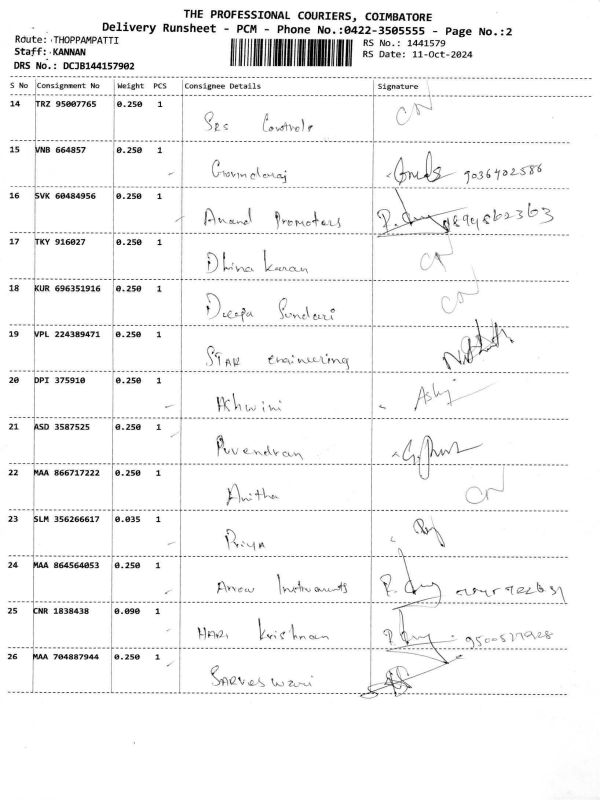 THE PROFESSIONAL COURIERS, COIMBATORE
Delivery Runsheet - PCM - Phone No.:0422-3505555 - Page No.:2
Route: THOPPAMPATTI
Staff: KANNAN
DRS No.: DCJB144157902
RS No.: 1441579
RS Date: 11-Oct-2024
S No Consignment No Weight PCS Consignee Details Signature
14 TRZ 95007765 0.250 1 Srs Controls CN
15 VNB 664857 0.250 1 Govindaraj 9036402586
16 SVK 60484956 0.250 1 Anand Promoters
17 TKY 916027 0.250 1 Dhina karan CN
18 KUR 696351916 0.250 1 Deepa Sundari CN
19 VPL 224389471 0.250 1 STAR engineering
20 DPI 375910 0.250 1 Ashwini
21 ASD 3587525 0.250 1 Puvendran
22 MAA 866717222 0.250 1 Anitha CN
23 SLM 356266617 0.035 1 Priya
24 MAA 864564053 0.250 1 Arrow Instruments
25 CNR 1838438 0.090 1 HARI Krishnan 9500577928
26 MAA 704887944 0.250 1 SARVESWARI